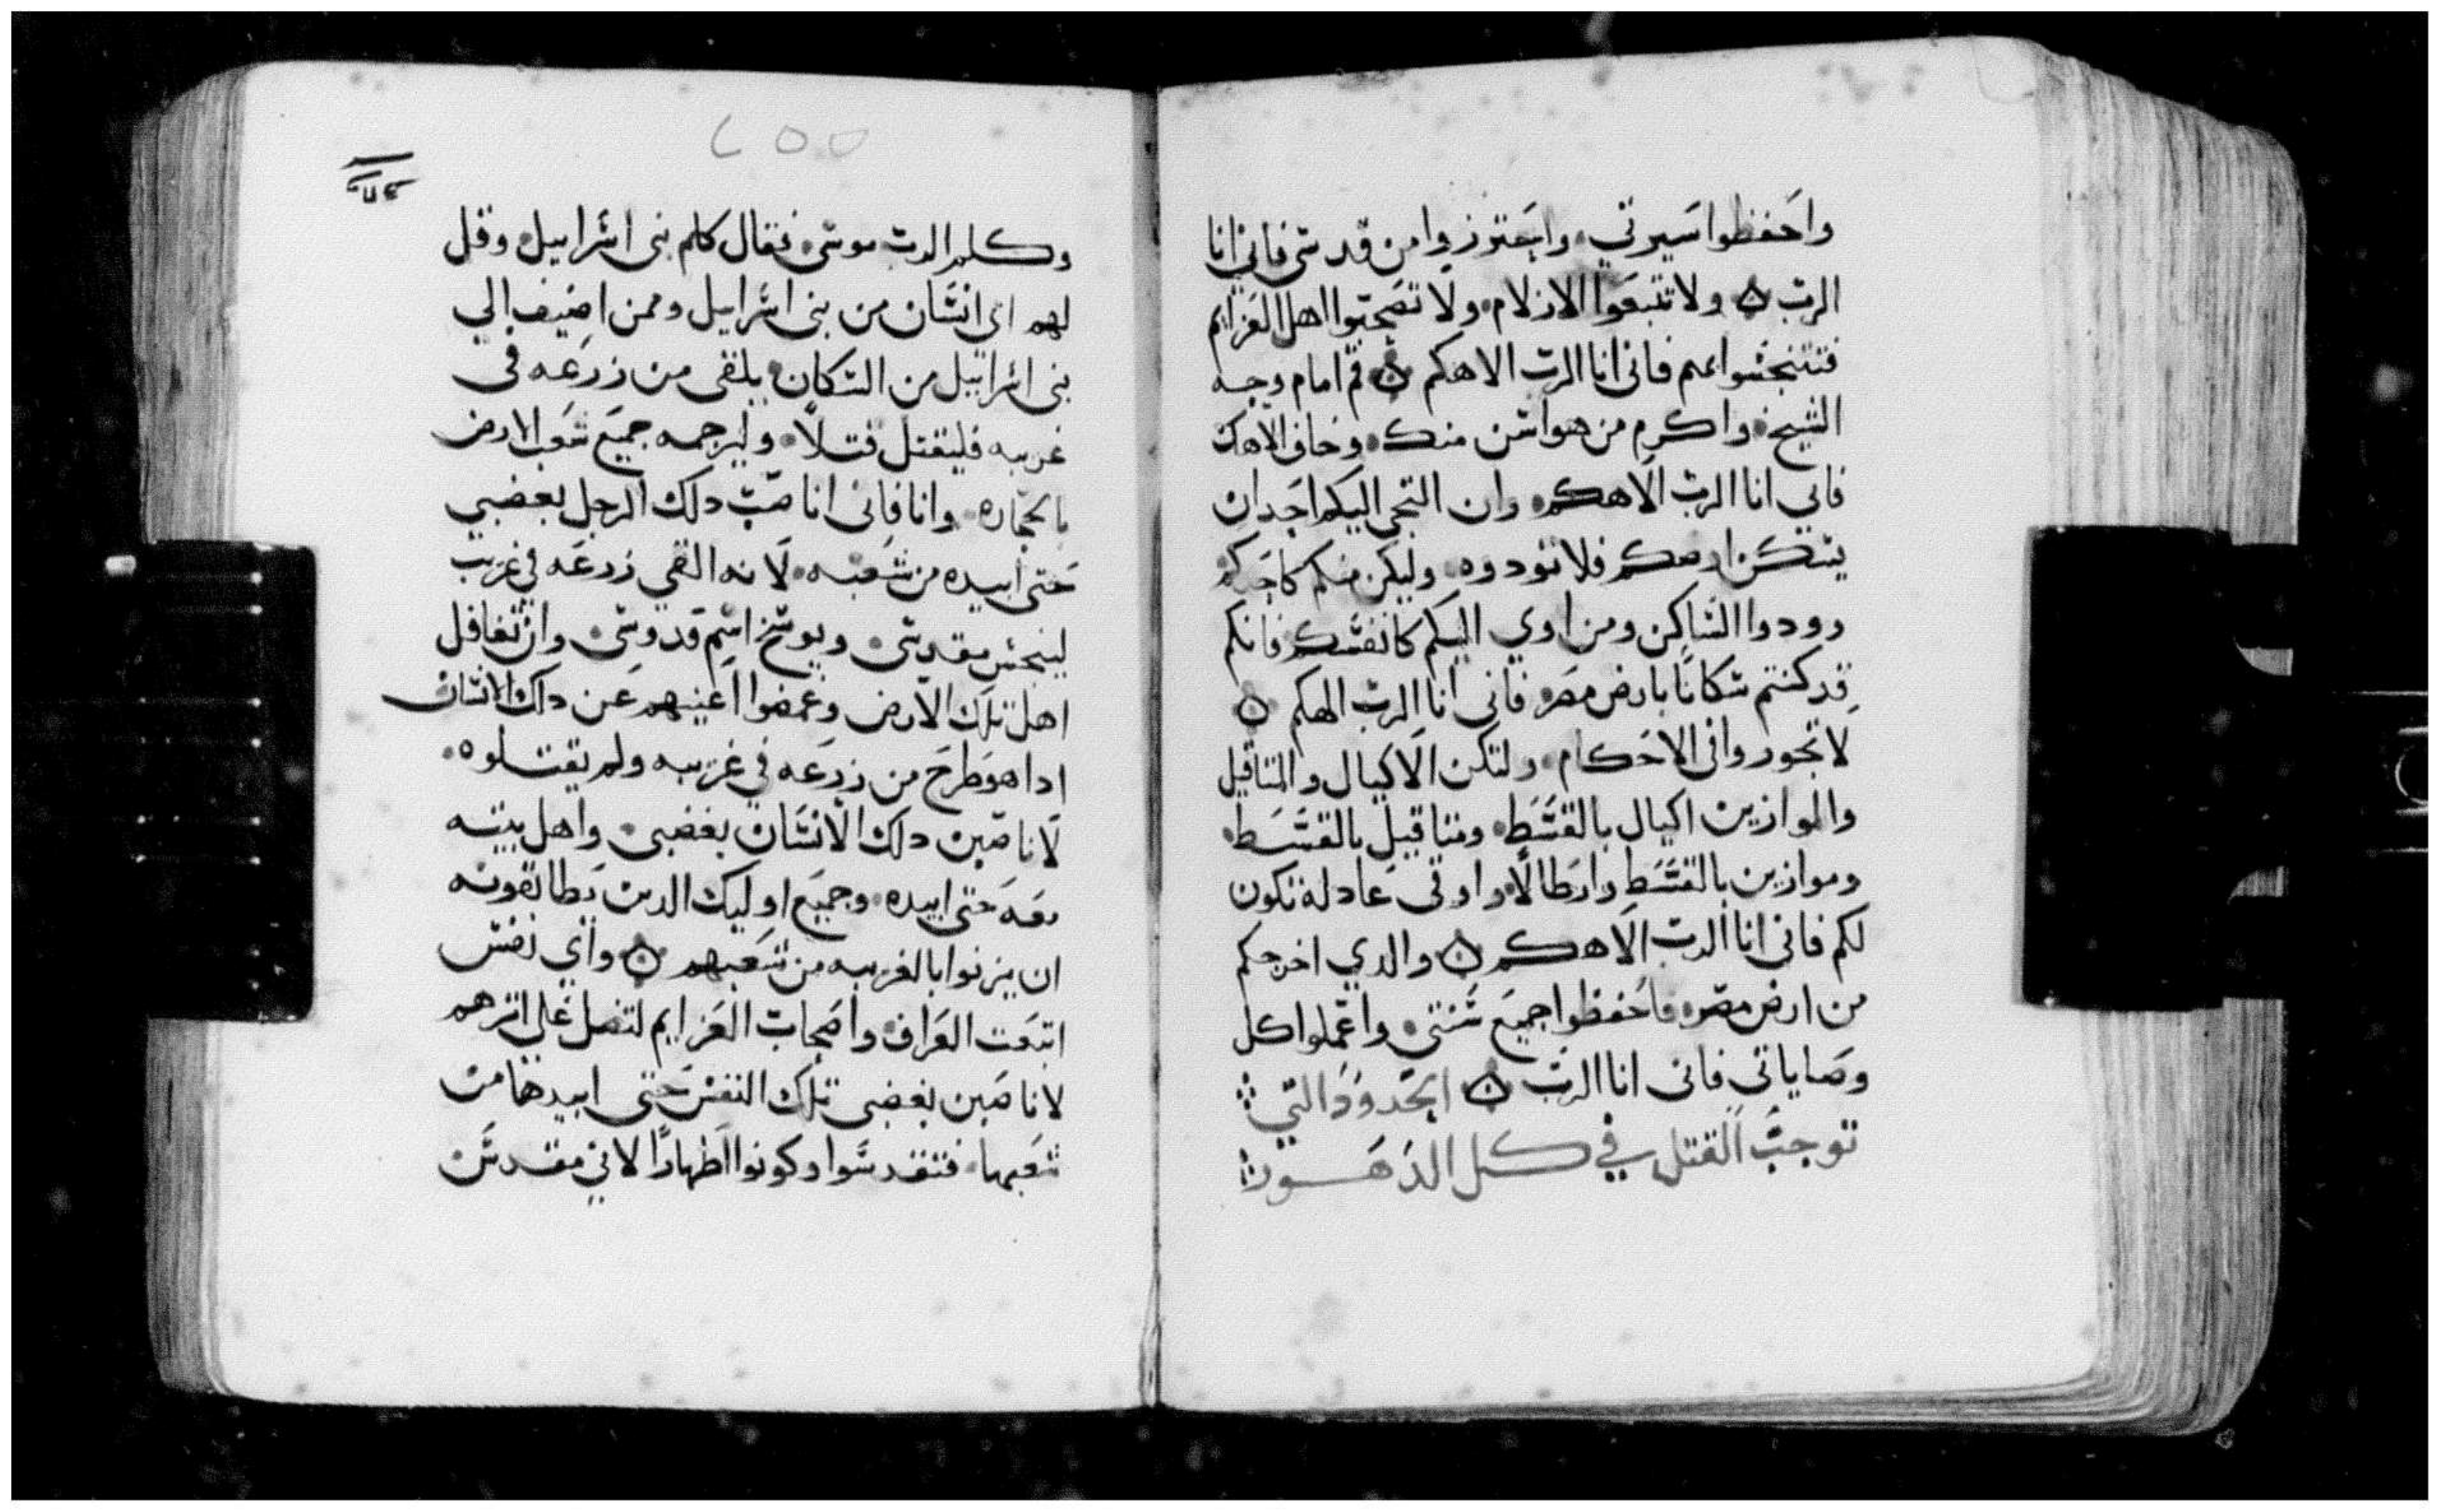 واحفظوا سيرتي وابحترزوا من قدسى فاني انا
الرب ولا تتبعوا الازلام ولا تصحبوا اهل العزايم
فتتنجسوا بهم فانى انا الرب الاهكم قم امام وجه
الشيخ واكرم من هو اسن منك وخاف الاهك
فاني انا الرب الاهكم وان التجى اليكم احدان
يسكن ارضكم فلا تؤدوه وليكن منكم كاحدكم
وودوا الساكن ومن اوي اليكم كانفسكم فانكم
قد كنتم سكانا بارض مصر فاني انا الرب الهكم
لا تجوروا فى الاحكام ولتكن الاكيال والمتاقيل
والموازين اكيال بالقسط ومتاقيل بالقسط
وموازين بالقسط وارطالا واواقى عادلة تكون
لكم فانى انا الرب الاهكم والدي اخرجكم
من ارض مصر فاحفظوا جميع سنتي واعملوا كل
وصاياتي فانى انا الرب الحدود التي
توجب القتل في كل الدهور
٢٥٥
وكلم الرب موسى فقال كلم بنى اسراييل وقل
لهم اى انسان من بنى اسراييل وممن اضيف الي
بنى اسراييل من السكان يلقى من زرعه فى
غريبه فليقتل قتلا وليرجمه جميع شعب الارض
بالحجاره وانا فانى انا صب دلك الرجل بغضبي
حتى ابيده من شعبه لانه القي زرعه في غريب
لينجس مقدسى ويوسخ اسم قدوسى وان تغافل
اهل تلك الارض وغمضوا اعينهم عن دلك الانسان
ادا هو طرح من زرعه في غريبه ولم يقتلوه
لاناصبن دلك الانسان بغضبى واهل بيته
معه حتى ابيده وجميع اوليك الدين يطابقونه
ان يزنوا بالغريبه من شعبهم واي نفس
اتبعت العراف واصحاب العزايم لتضل على اترهم
لاناصبن بغضبى تلك النفس حتى ابيدها من
شعبها فتقدسوا وكونوا اطهارا لاني مقدس